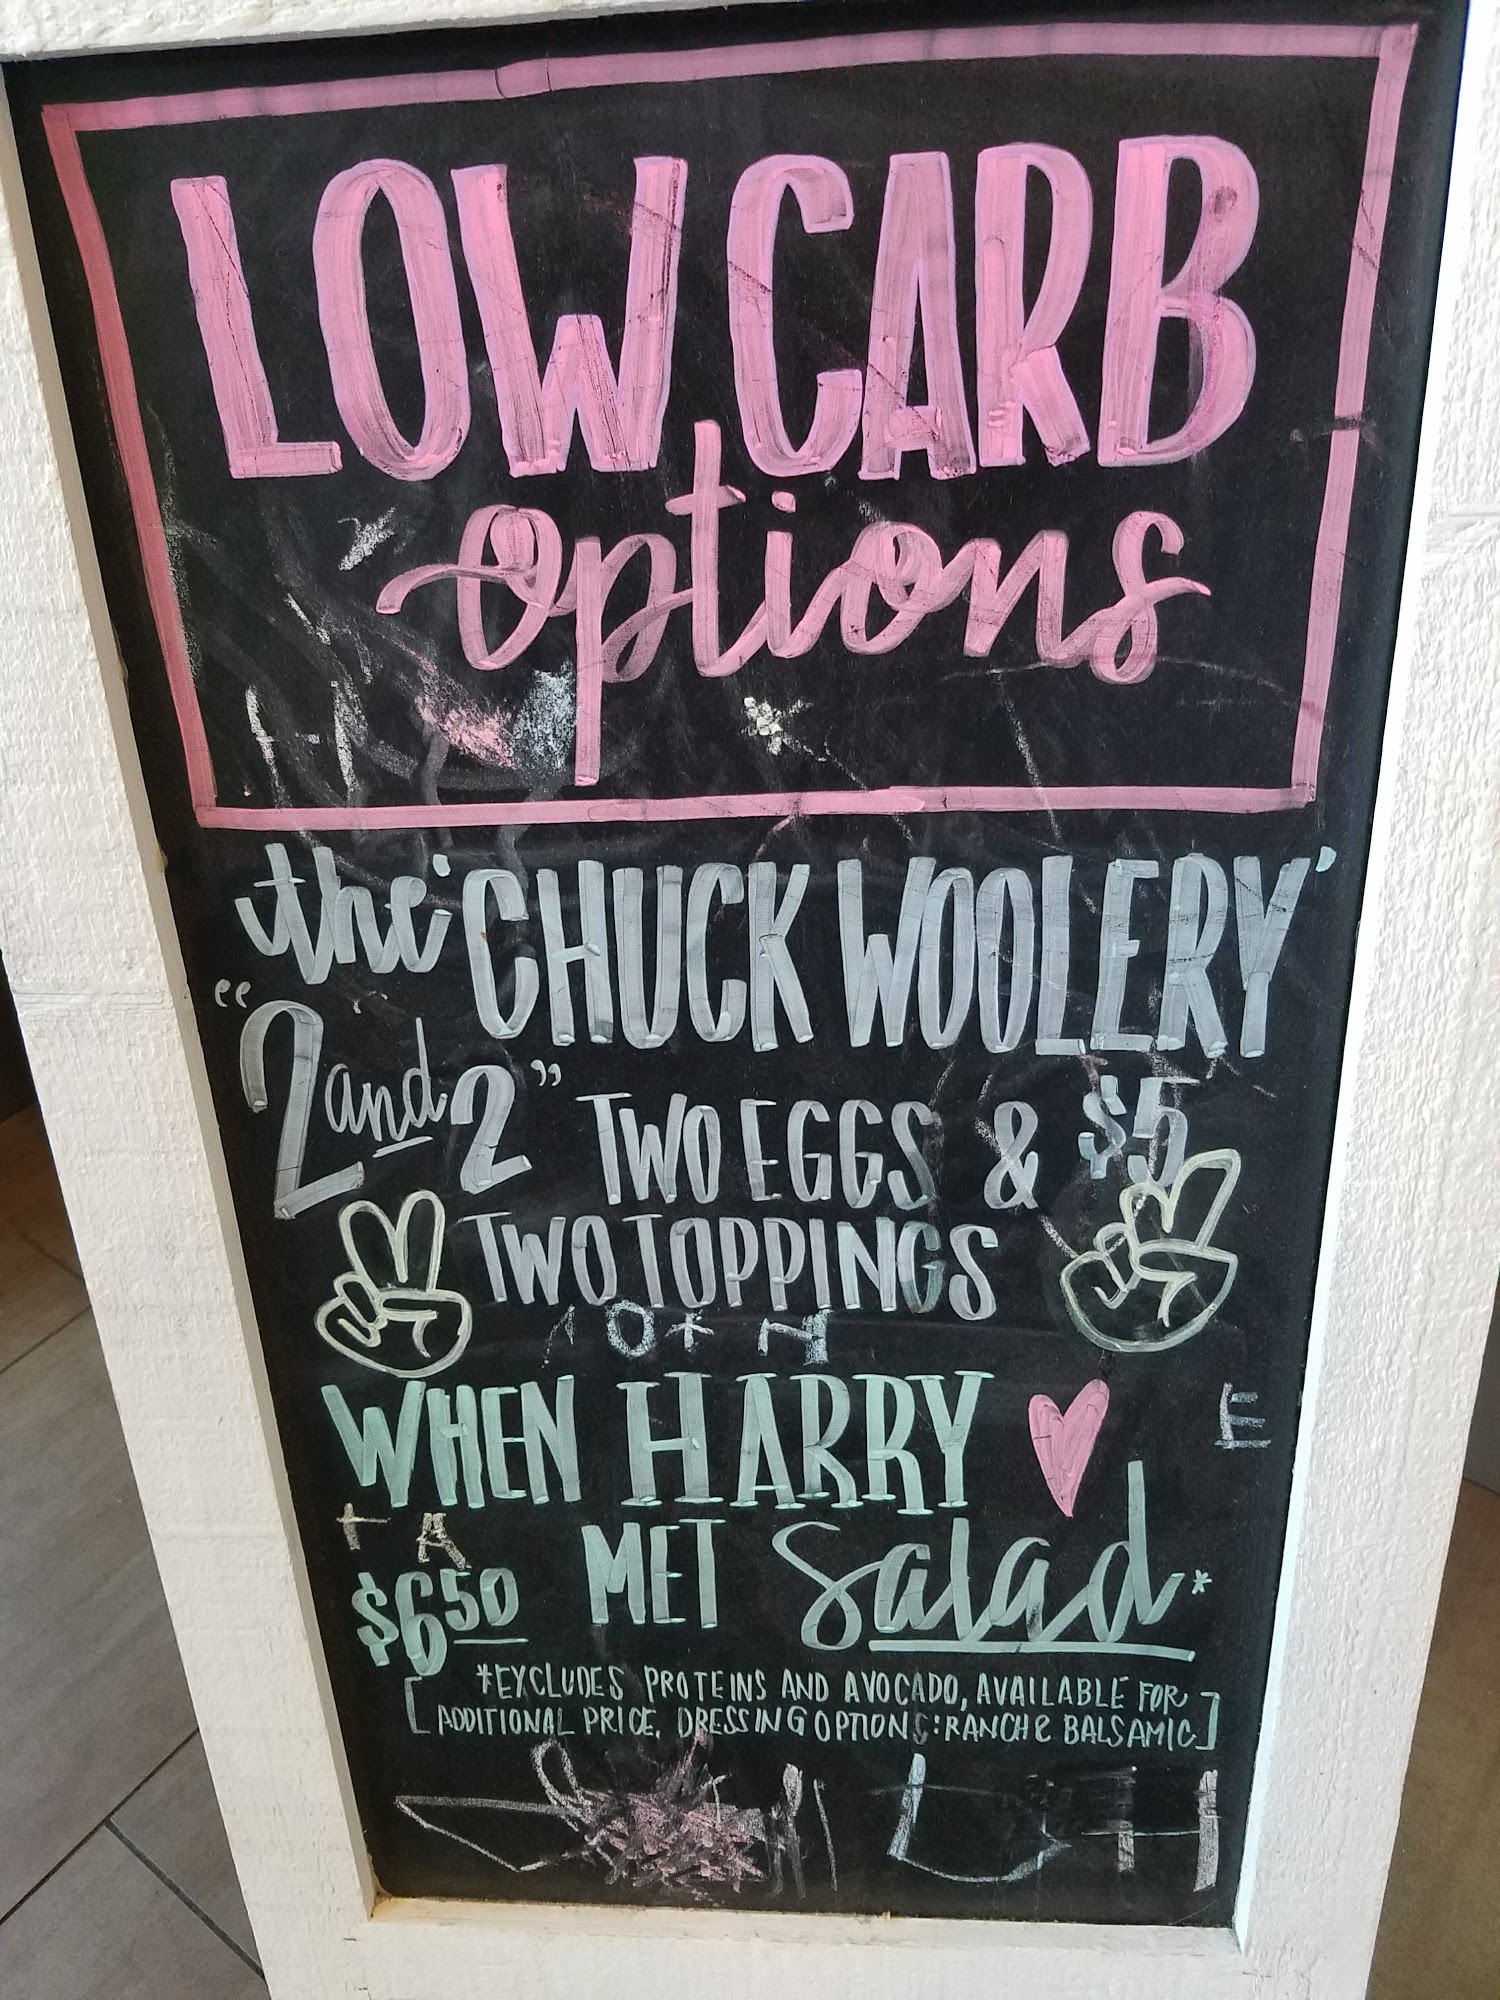 LOW CARB
options
the 'CHUCK WOOLERY'
"2 and 2" TWO EGGS & $5
TWO TOPPINGS
WHEN HARRY
E
+ A
$6.50 MET Salad*
[*EXCLUDES PROTEINS AND AVOCADO, AVAILABLE FOR
ADDITIONAL PRICE. DRESSING OPTIONS: RANCH & BALSAMIC]